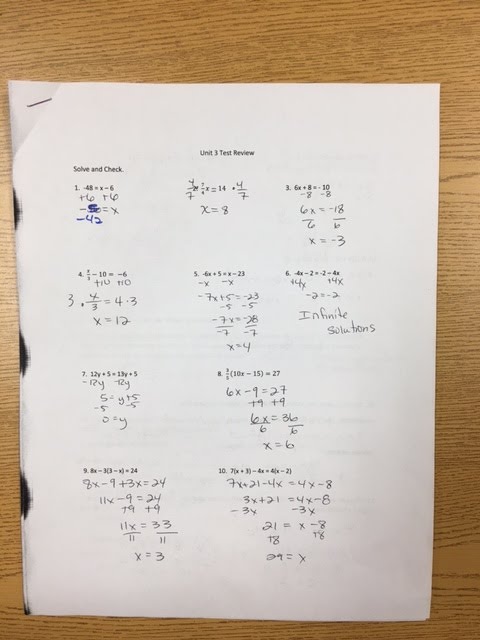 Unit 3 Test Review
Solve and Check.
1. -48 = x - 6
+6 +6
= x
-42
4/7 · 7/4 x = 14 · 4/7
x = 8
3. 6x + 8 = -10
-8 -8
6x = -18
6 6
x = -3
4. x/3 - 10 = -6
+10 +10
3 · x/3 = 4 · 3
x = 12
5. -6x + 5 = x - 23
-x -x
-7x + 5 = -23
-5 -5
-7x = -28
-7 -7
x = 4
6. -4x - 2 = -2 - 4x
+4x +4x
-2 = -2
Infinite
solutions
7. 12y + 5 = 13y + 5
-12y -12y
5 = y + 5
-5 -5
0 = y
8. 3/5 (10x - 15) = 27
6x - 9 = 27
+9 +9
6x = 36
6 6
x = 6
9. 8x - 3(3 - x) = 24
8x - 9 + 3x = 24
11x - 9 = 24
+9 +9
11x = 33
11 11
x = 3
10. 7(x + 3) - 4x = 4(x - 2)
7x + 21 - 4x = 4x - 8
3x + 21 = 4x - 8
-3x -3x
21 = x - 8
+8 +8
29 = x